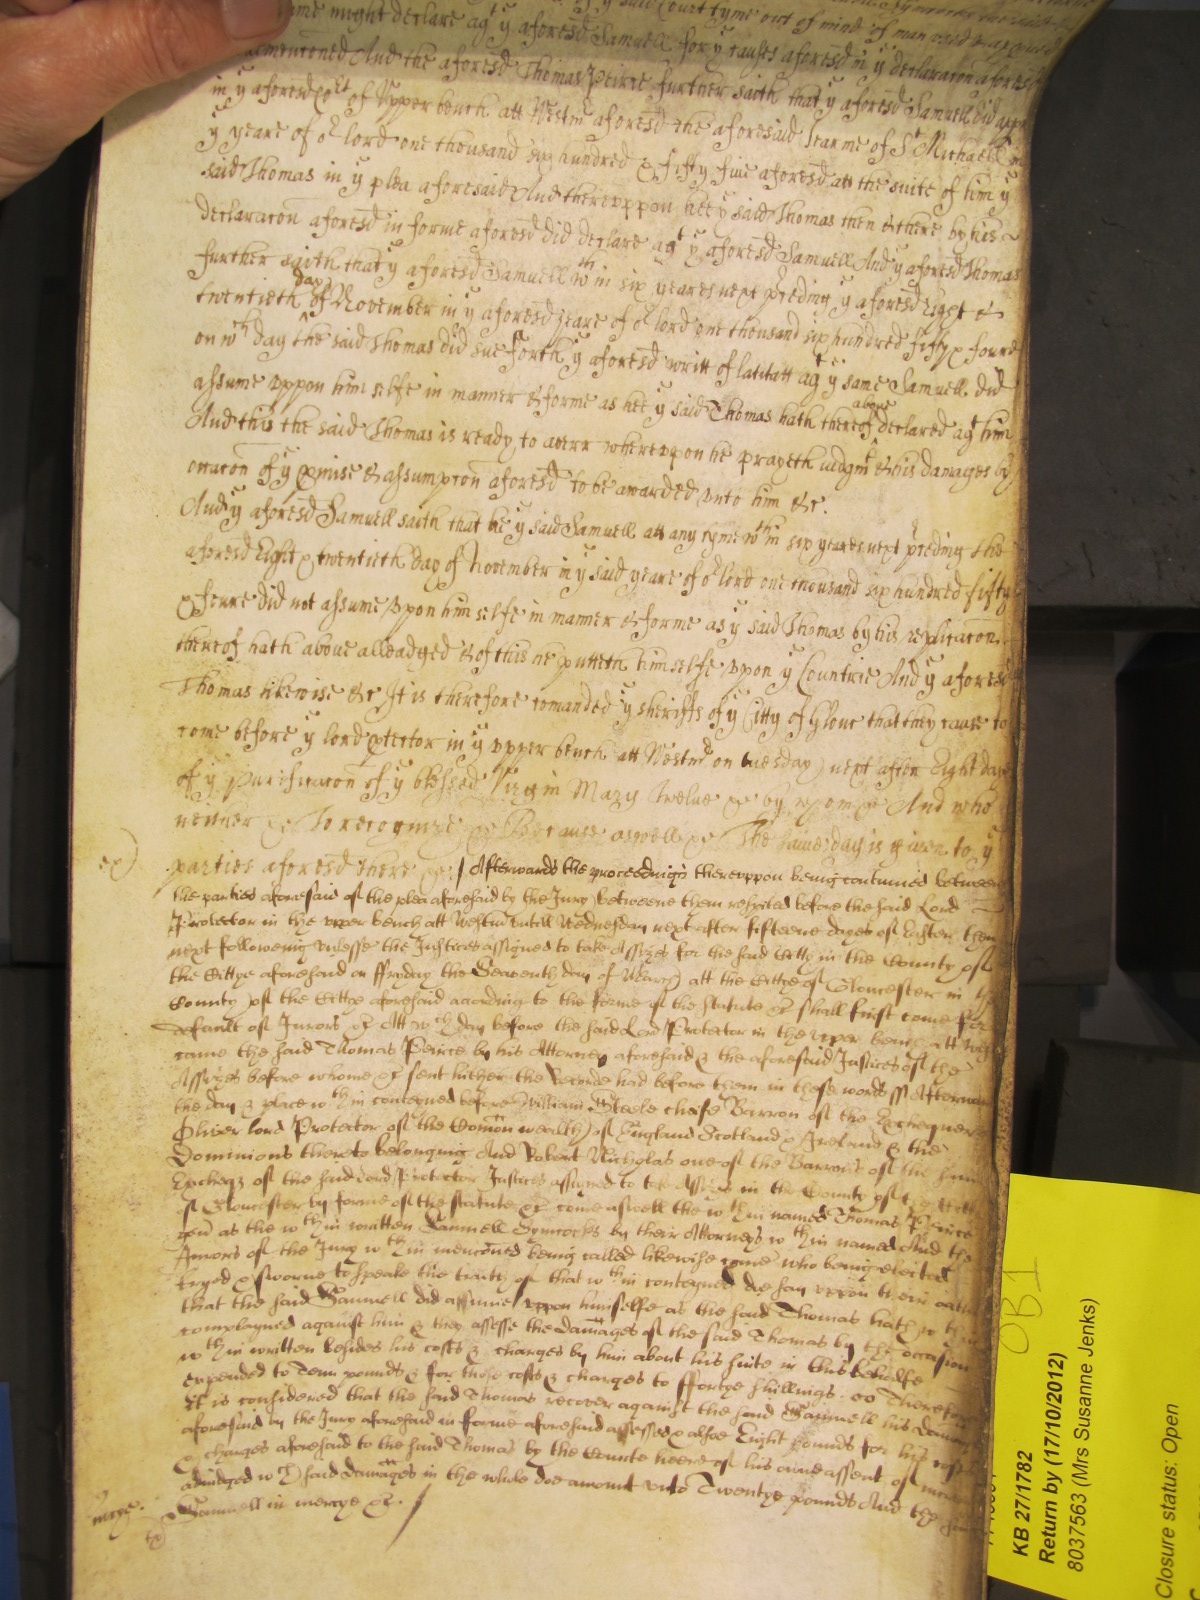 same might declare agt y aforesd Samuell for y causes aforesd in y declaracon aforesd
menconed And the aforesd Thomas Peirce further saith that y aforesd Samuell did
in y aforesd Cort of Upper bench att Westmr aforesd the aforesaid tearme of St Michaell in
y yeare of or lord one thousand six hundred & fifty five aforesd att the suite of him y
said Thomas in y plea aforesaid And thereuppon hee y said Thomas then & there by his
declaracon aforesd in forme aforesd did declare agt y aforesd Samuell And y aforesd Thomas
further saith that y aforesd Samuell wth in six yeares next preding y aforesd Eight &
twentieth day of November in y aforesd yeare of or lord one thousand six hundred fifty & foure
on wch day the said Thomas did sue forth y aforesd writt of latitatt agt y same Samuell did
assume uppon him selfe in manner & forme as hee y said Thomas hath thereof above declared agt him
And this the said Thomas is ready to averr whereupon he prayeth iudgmt & his damages by
occacon of y pmise & assumpcon aforesd to be awarded unto him &c.
And y aforesd Samuell saith that he y said Samuell att any tyme wth in six yeares next preding the
aforesd Eight & twentieth day of November in y said yeare of or lord one thousand six hundred fifty
& foure did not assume upon him selfe in manner & forme as y said Thomas by his replicacon
thereof hath above alleadged & of this he putteth himselfe upon y Countrie And y aforesd
Thomas likewise &c It is therefore comanded y sheriffs of y Citty of Glouc that they cause to
come before y lord ptector in y upper bench att Westmr on tuesday next after Eight dayes
of y Purificacon of y blessed Virgin Mary twelve &c by whom &c And who
neither &c To recognize &c Because aswell &c The same day is given to y
parties aforesd there &c / Afterwards the proceedings thereuppon being continued betweene
the parties aforesaid of the plea aforesaid by the Jury betweene them respited before the said Lord
Protector in the upper bench att Westmr untill Wednesday next after fifteene dayes of Easter then
next followeing unlesse the Justices assigned to take Assizes for the said Citty in the County of
the Cittye aforesaid on ffryday the Seaventh day of March att the Cittye of Gloucester in the
County of the Cittye aforesaid according to the forme of the Statute &c shall first come for
default of Jurors &c Att wch day before the said Lord Protector in the upper bench att
came the said Thomas Peirce by his Attorney aforesaid & the aforesaid Justices of the
Assizes before whome &c sent hither the Recorde had before them in these words ss Afterwards
the day & place wth in conteyned before William Steele cheife Barron of the Exchequer
Oliver lord Protector of the Comon wealth of England Scotland & Ireland & the
Dominions thereto belonging And Robert Nicholas one of the Barrons of the said
Excheqr of the said Lord Protector Justices assigned to take Assizes in the County of the Citty
of Gloucester by forme of the statute &c come aswell the wth in named Thomas Peirce
as the wth in written Samuell Symcocks by their Attorneys wth in named And the
Jurors of the Jury wth in menconed being called likewise come who being elected
tryed & sworne to speake the truth of that wth in conteyned doe say uppon their oath
that the said Samuell did assume uppon himselfe as the said Thomas hath wth in
complayned against him & they assesse the damages of the said Thomas by the occasion
wth in written besides his costs & charges by him about his suite in this behalfe
expended to Tenn pounds & for those costs & charges to ffortye shillings. Therefore
it is considered that the said Thomas recover against the said Samuell his damages
aforesaid by the Jury aforesaid in forme aforesaid assessed & alsoe Eight pounds for his costs
& charges aforesaid to the said Thomas by the Courte heere of his owne assent of
adiudged wch said damages in the whole doe amount unto Twentye pounds And the said
mcye. Samuell in mercye &c. /
OB1
KB 27/1782
Return by (17/10/2012)
8037563 (Mrs Susanne Jenks)
Closure status: Open